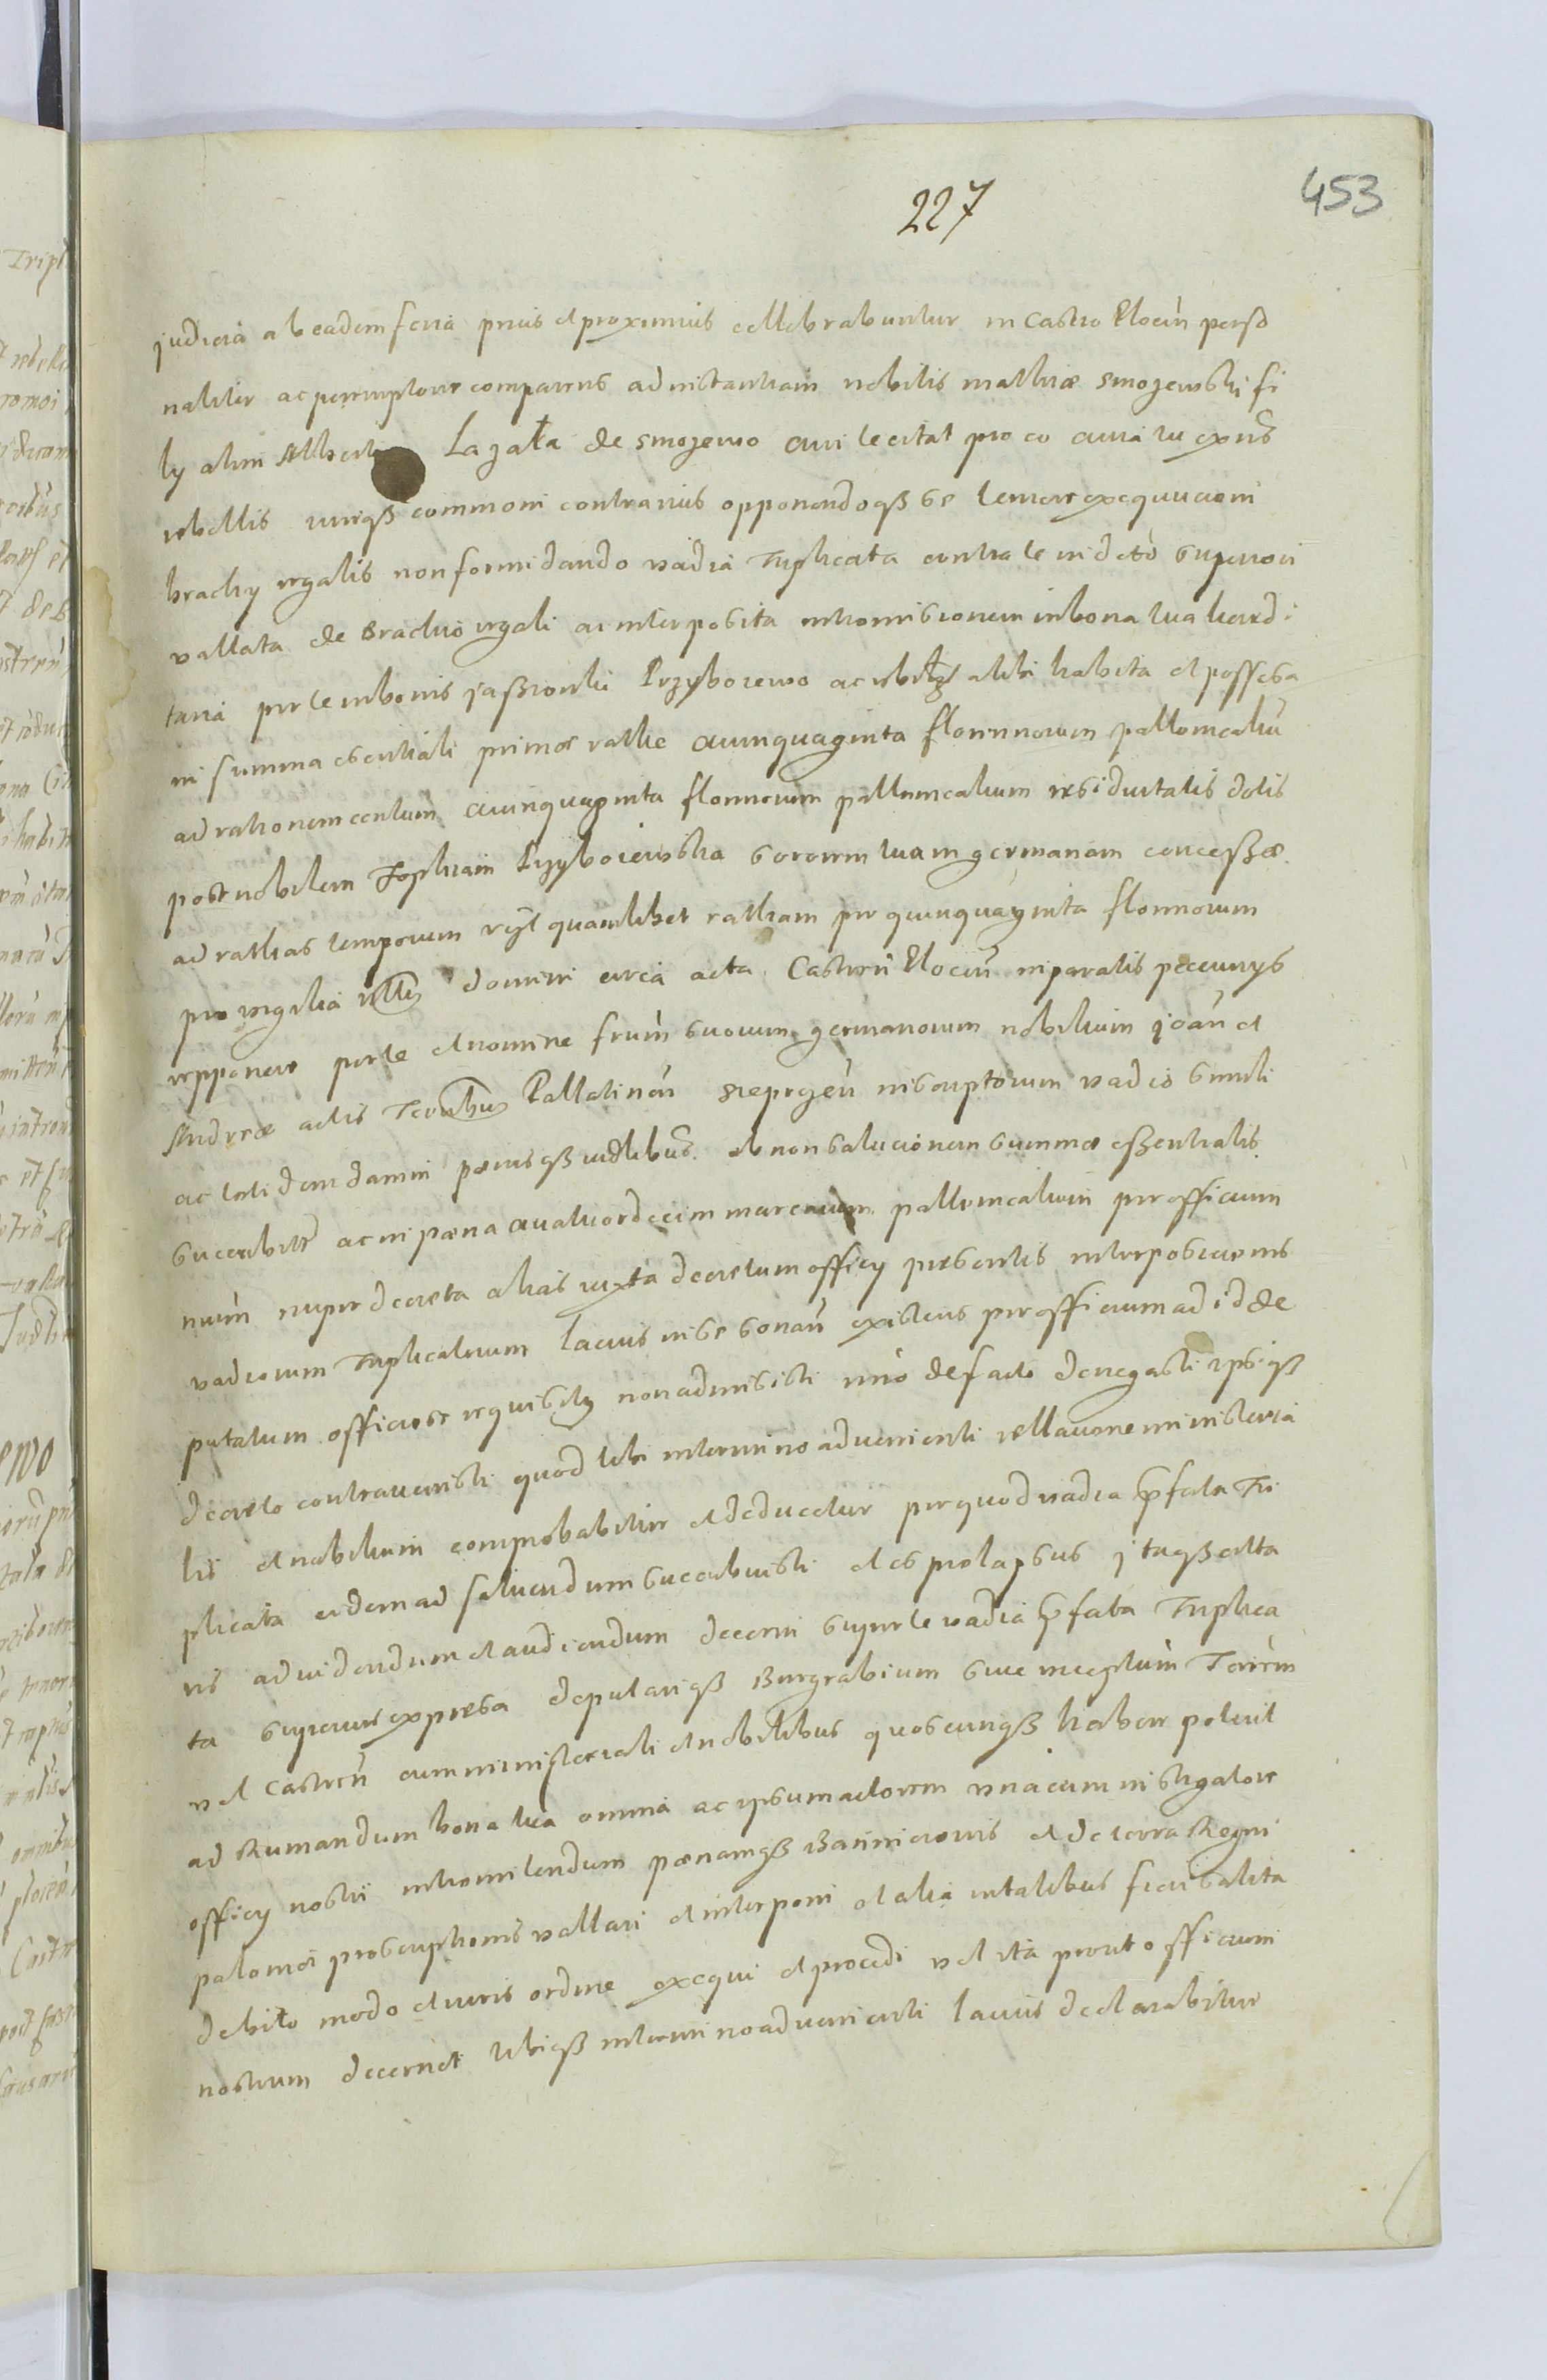 227
453
judicia ab eadem feria prius et proximius cellebrabuntur in Castro Plocen perso
naliter ac peremptorie compareas ad instantiam nobilis mathiæ Smozewski fi
ly olim Alberti Lazata de Smozewo qui te citat pro eo quia tu existens
rebellis iurique communi contrarius opponendoque se temere exequucioni
brachy regalis non formidando vadia Triplicata contra te in decreto superiori
vallata de Brachio regali ac interposita intromissionem in bona tua heredi
taria per te in bonis jaßionki Przyborewo ac ubilibet alibi habita et possessa
in summa essentiali primæ rathæ quinquaginta florinorum pollonicaliu
ad rationem centum quinquaginta florinorum pollonicalium residuitatis dotis
post nobilem Sophiam Przyborewska sororem tuam germanam conceßæ
ad rathas temporum videlicet quamlibet ratham per quinquaginta florinorum
pro vigilia domini circa acta Castren Plocen in paratis pecunys
repponere per te et nomine frum suorum germanorum nobilium joan et
Andreæ actis Terribus Pallatinan Sieprzen inscriptorum vadio simili
ac totidem damni pænisque ob non solucionem summæ eßentialis
succubitt ac in pæna quatuordecim marcarum pollonicalium per officium
nrum nuper decreta alias iuxta decretum officy præsentis interposicionis
vadiorum Triplicatuum lacius in se sonan existens per officium ad id de
putatum officiose requisitus non admisisti imo de facto denegasti ipsique
decreto contravenisti quod tibi in termino advenienti rellacione ministeria
lis et nobilium comprobabitur et deducetur per quod vadia præfata Tri
plicata eidem ad solvendum succubuisti et es prolapsus jtaque citta
ris ad videndum et audiendum decerni super te vadia præfata Triplica
ta superius expressa deputarique Burgrabium sive inceptum Terrem
vel Castren cum ministeriali et nobilibus quoscunque habere poterit
ad Rumandum bona tua omnia ac ipsum actorem vna cum instigatore
officy nostri intromitendum pænamque Bannicionis et de terra Regni
poloniæ proscriptionis vallari et interponi et alia in talibus fieri solita
debito modo et iuris ordine exequi et procedi vel ita prout officium
nostrum decernet tibique in termino advenienti lacius declarabitur